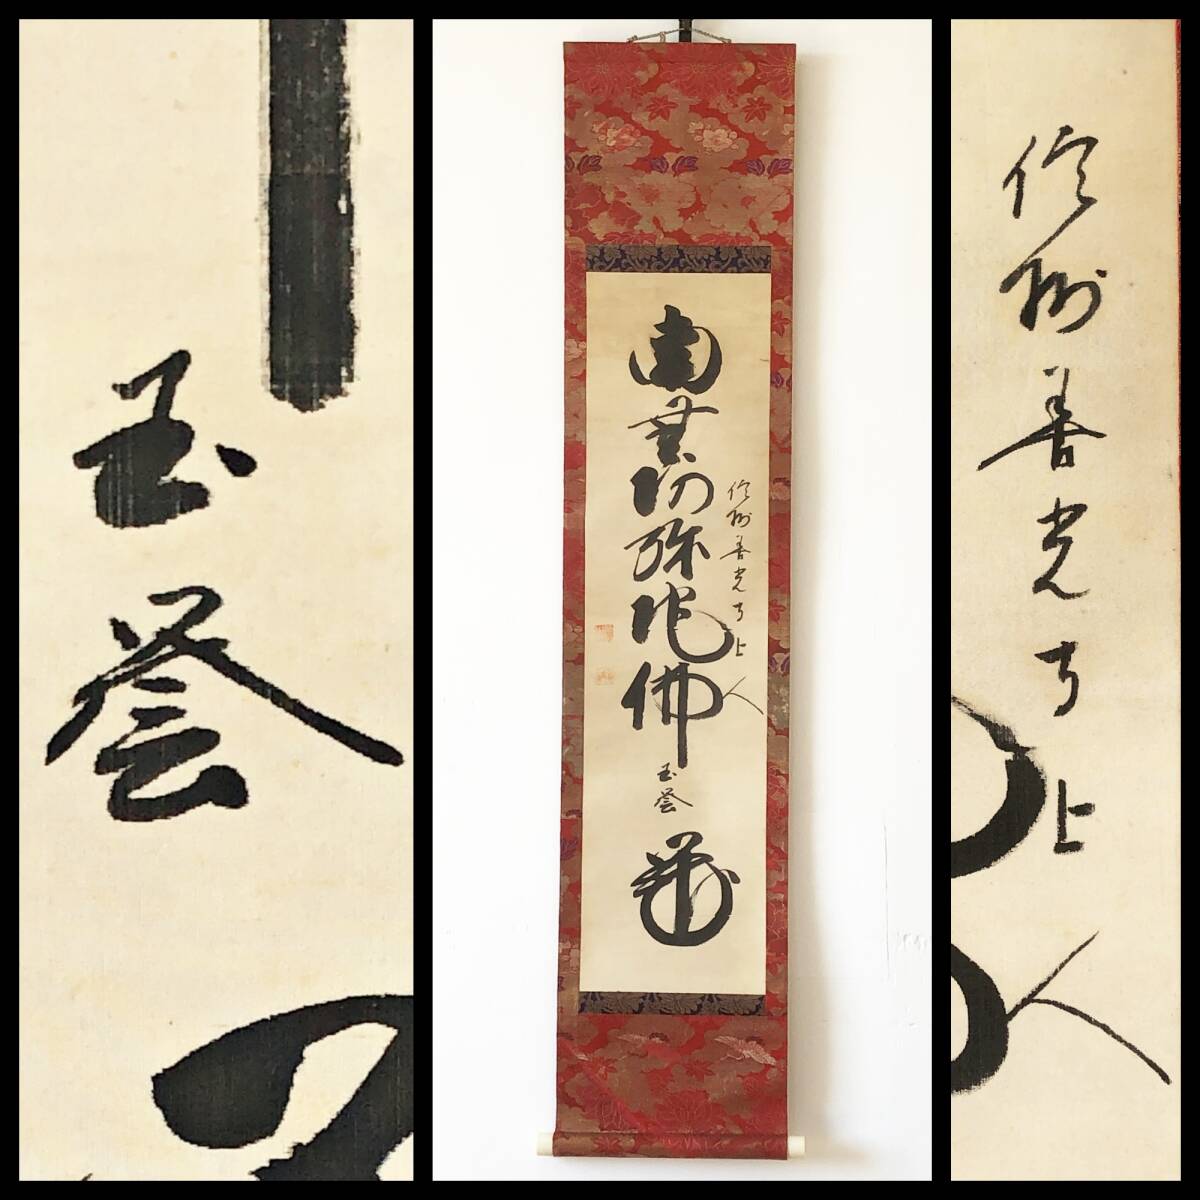 玉誉
南無阿弥陀佛
信州善光寺上人
玉誉
信州善光寺上人